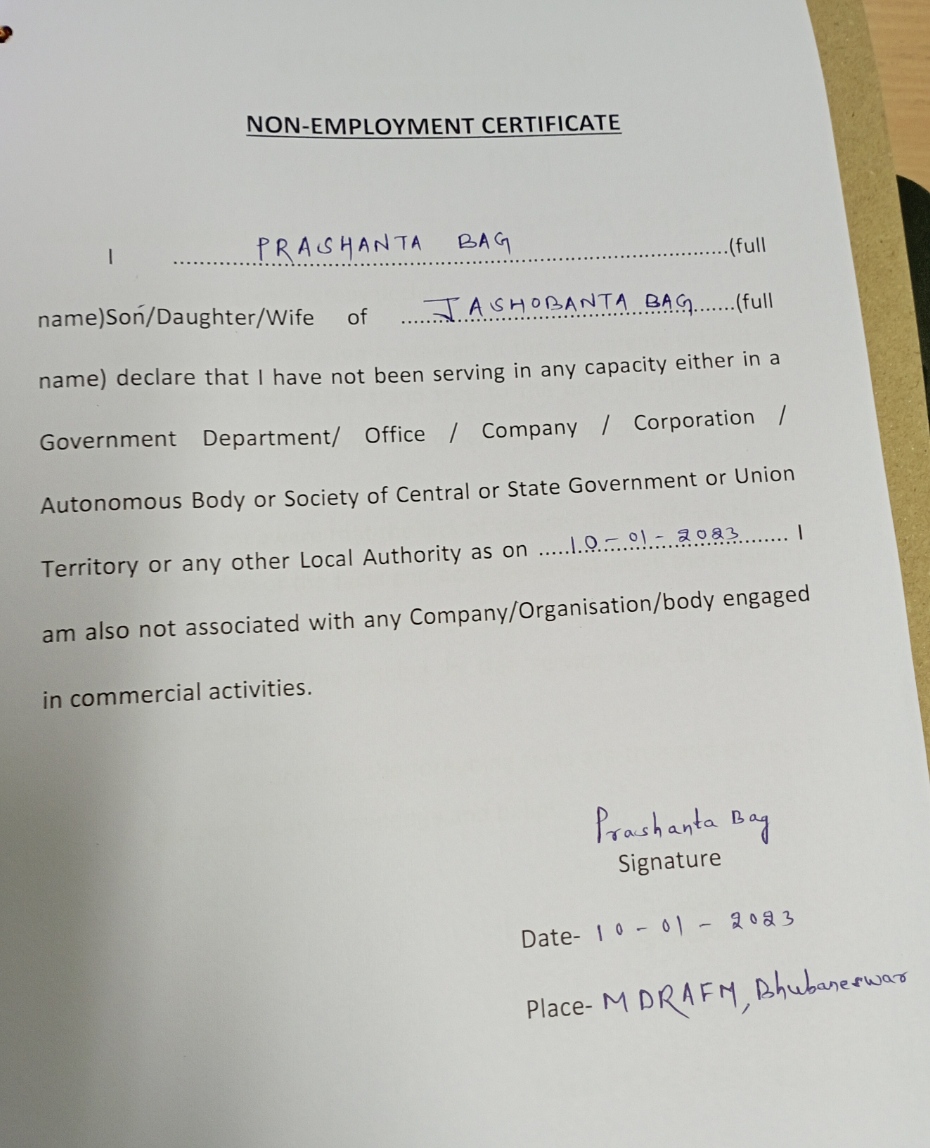 NON-EMPLOYMENT CERTIFICATE
I ....PRASHANTA BAG....(full
name)Son/Daughter/Wife of ....JASHOBANTA BAG....(full
name) declare that I have not been serving in any capacity either in a
Government Department/ Office / Company / Corporation /
Autonomous Body or Society of Central or State Government or Union
Territory or any other Local Authority as on ....10-01-2023.... I
am also not associated with any Company/Organisation/body engaged
in commercial activities.
Prashanta Bag
Signature
Date- 10-01-2023
Place- MDRAFM, Bhubaneswar